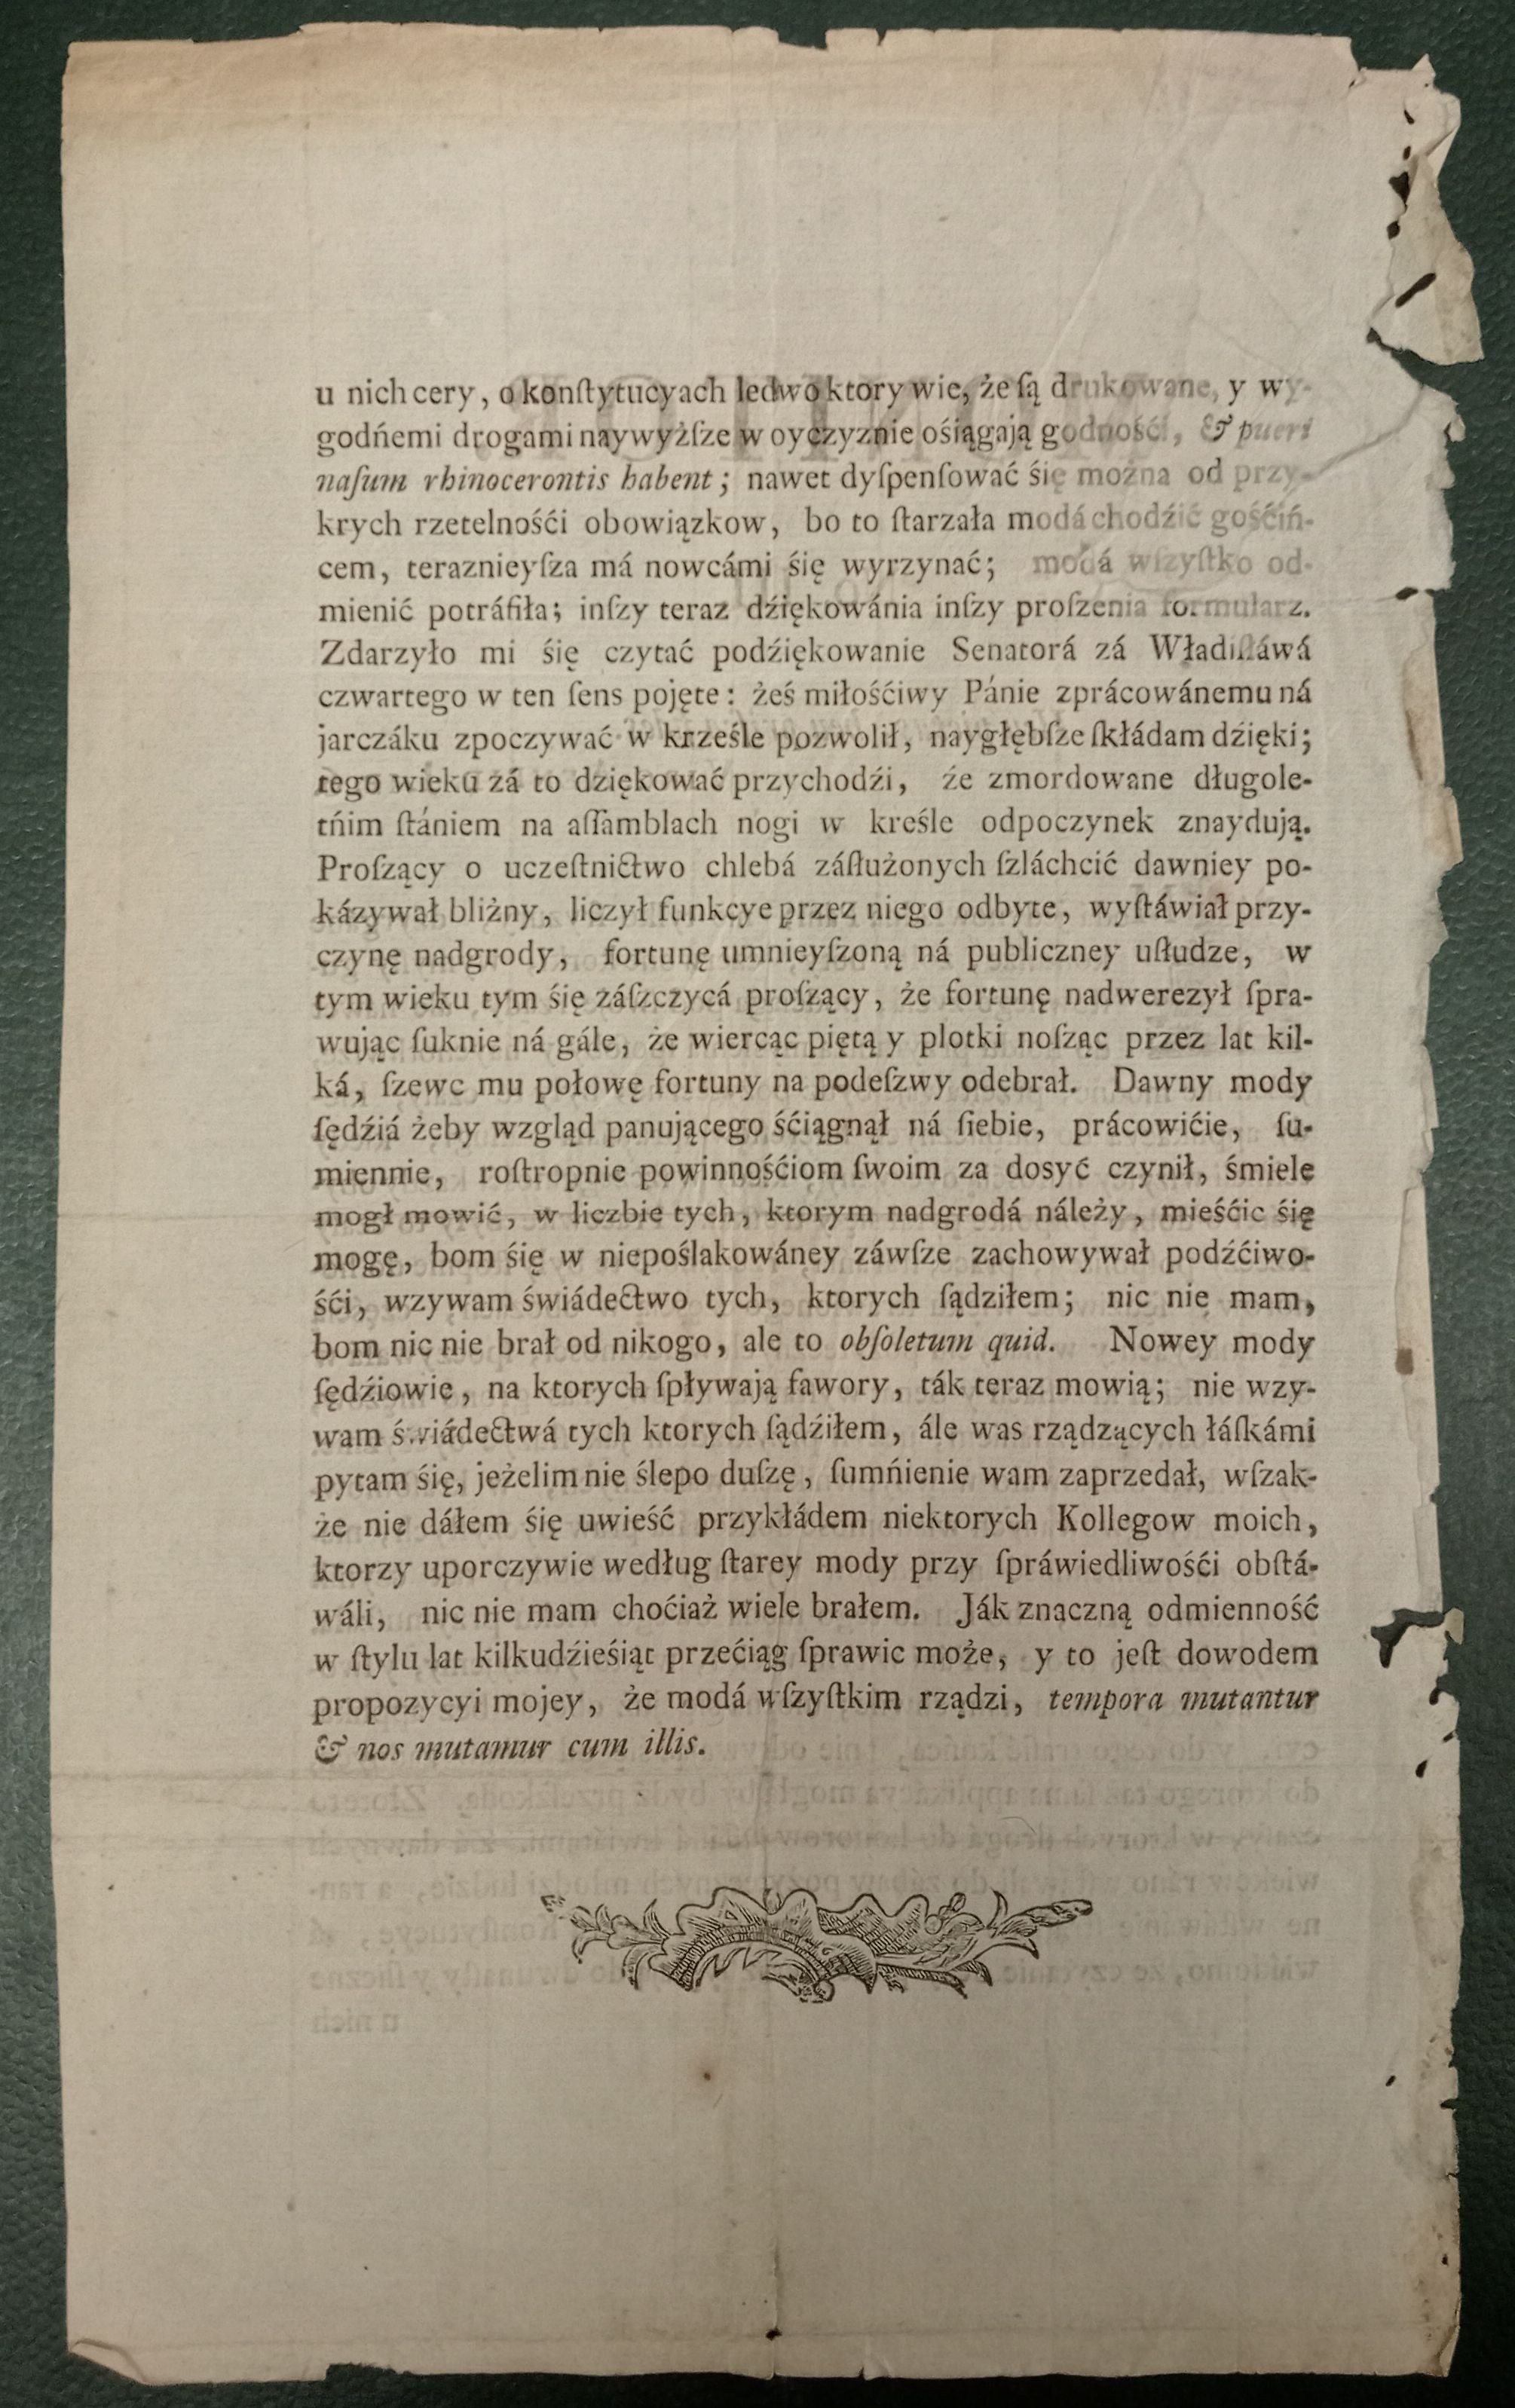 u nich cery, o konſtytucyach ledwo ktory wie, że ſą drukowane, y wy-
godńemi drogami naywyżſze w oyczyznie ośiągają godnośći, & pueri
naſum rhinocerontis habent; nawet dyſpenſować śię można od przy-
krych rzetelnośći obowiązkow, bo to ſtarzała modá chodźić gośćiń-
cem, teraznieyſza má nowcámi śię wyrzynać; modá wſzyſtko od-
mienić potráfiła; inſzy teraz dźiękowánia inſzy proſzenia formularz.
Zdarzyło mi śię czytać podźiękowanie Senatorá zá Władiſláwá
czwartego w ten ſens pojęte: żeś miłośćiwy Pánie zprácowánemu ná
jarczáku zpoczywać w krześle pozwolił, naygłębſze ſkłádam dźięki;
tego wieku zá to dziękować przychodźi, źe zmordowane długole-
tńim ſtániem na aſſamblach nogi w kreśle odpoczynek znaydują.
Proſzący o uczeſtnictwo chlebá záſłużonych ſzláchcić dawniey po-
kázywał bliżny, liczył funkcye przez niego odbyte, wyſtáwiał przy-
czynę nadgrody, fortunę umnieyſzoną ná publiczney uſłudze, w
tym wieku tym śię záſzczycá proſzący, że fortunę nadwerezył ſpra-
wując ſuknie ná gále, że wiercąc piętą y plotki noſząc przez lat kil-
ká, ſzewc mu połowę fortuny na podeſzwy odebrał. Dawny mody
ſędźiá żeby wzgląd panującego śćiągnął ná ſiebie, prácowićie, ſu-
miennie, roſtropnie powinnośćiom ſwoim za dosyć czynił, śmiele
mogł mowić, w liczbie tych, ktorym nadgrodá náleży, mieśćic śię
mogę, bom śię w niepoślakowáney záwſze zachowywał podźćiwo-
śći, wzywam świádectwo tych, ktorych ſądziłem; nic nie mam,
bom nic nie brał od nikogo, ale to obſoletum quid. Nowey mody
ſędźiowie, na ktorych ſpływają fawory, ták teraz mowią; nie wzy-
wam świádectwá tych ktorych ſądźiłem, ále was rządzących łáſkámi
pytam śię, jeżelim nie ślepo duſzę, ſumńienie wam zaprzedał, wſzak-
że nie dáłem śię uwieść przykłádem niektorych Kollegow moich,
ktorzy uporczywie według ſtarey mody przy ſpráwiedliwośći obſtá-
wáli, nic nie mam choćiaż wiele brałem. Ják znaczną odmienność
w ſtylu lat kilkudźieśiąt przećiąg ſprawic może, y to jeſt dowodem
propozycyi mojey, że modá wſzyſtkim rządzi, tempora mutantur
& nos mutamur cum illis.